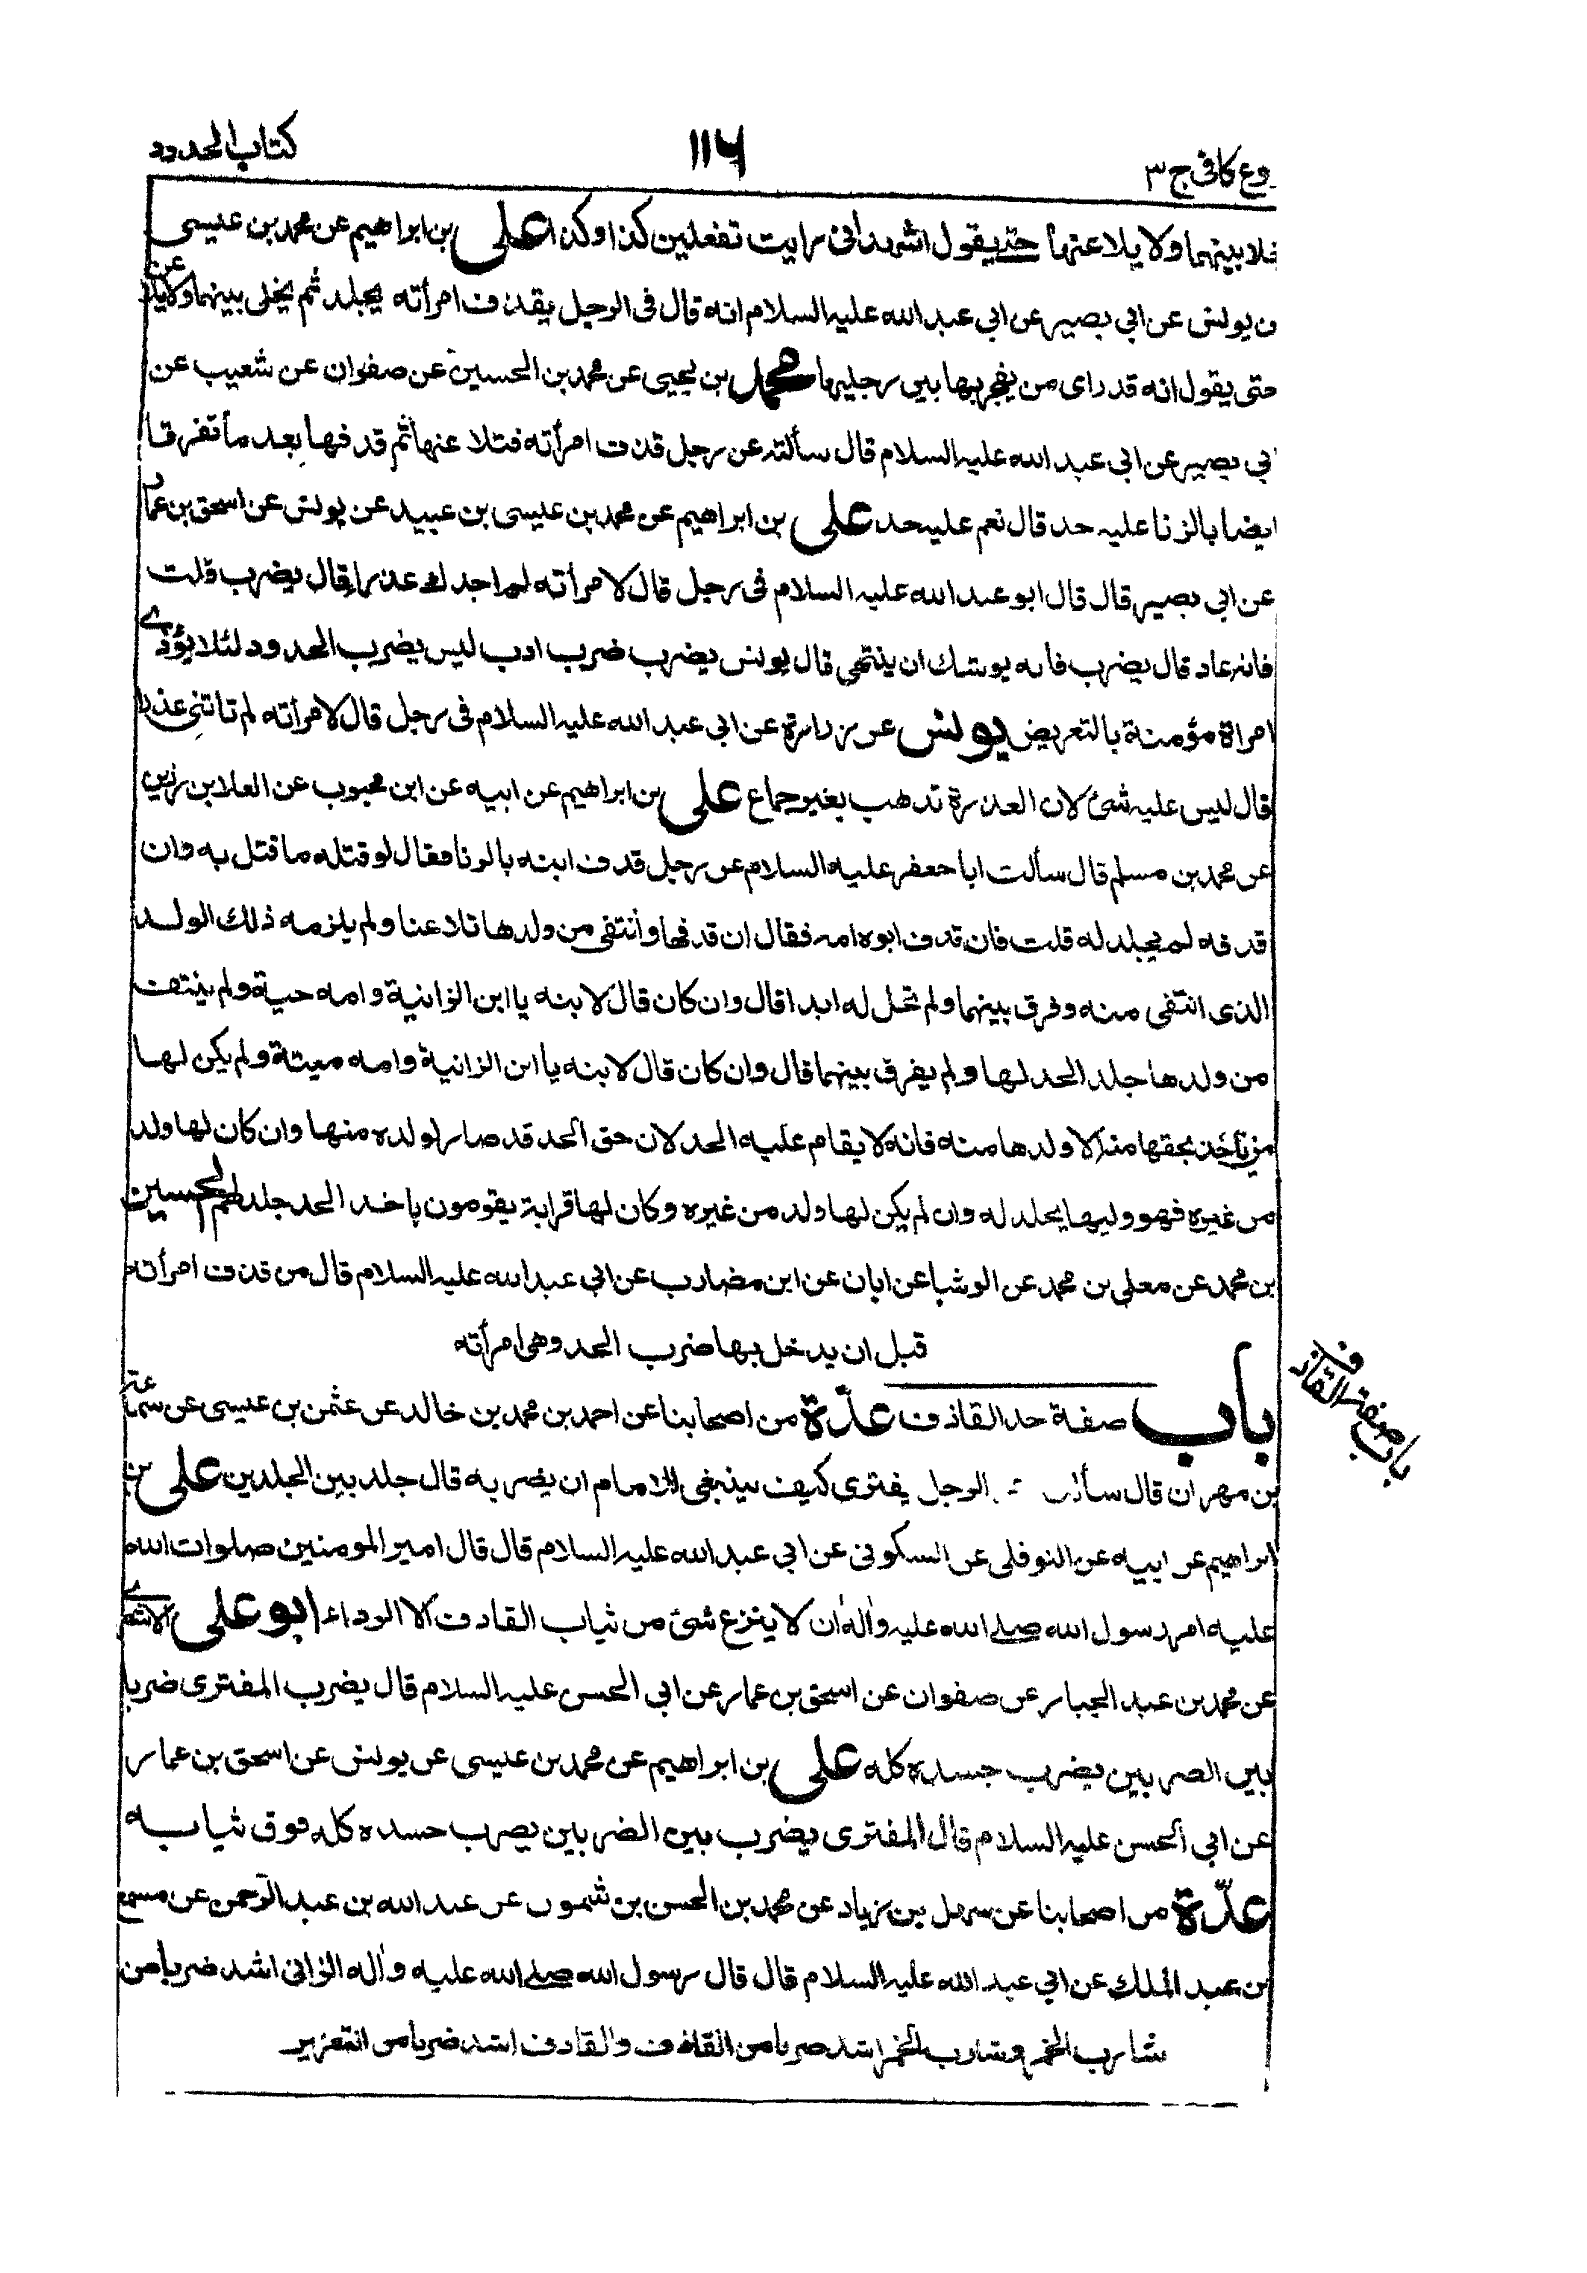 وع كافى ج ٣
١١٦
كتاب الحدود
خلا بينهما ولا يلاعنها حتى يقول اشهد انى رايت تفعلين كذا وكذا على بن ابراهيم عن محمد بن عيسى
عن يونس عن ابى بصير عن ابى عبد الله عليه السلام انه قال فى الرجل يقذف امرأته يجلد ثم يخلى بينهما ولا يلاعن
حتى يقول انه قد راى من يفجر بها بين رجليها محمد بن يحيى عن محمد بن الحسين عن صفوان عن شعيب عن
ابى بصير عن ابى عبد الله عليه السلام قال سألته عن رجل قذف امرأته فتلا عنها ثم قذفها بعد ما تفرقا
ايضا بالزنا عليه حد قال نعم عليه حد على بن ابراهيم عن محمد بن عيسى بن عبيد عن يونس عن اسحق بن عمار
عن ابى بصير قال قال ابو عبد الله عليه السلام فى رجل قال لامرأته لم اجدك عذراء قال يضرب قلت
فانه عاد قال يضرب فانه يوشك ان ينتهى قال يونس يضرب ضرب ادب ليس يضرب الحدود لئلا يؤذى
امراة مؤمنة بالتعريض يونس عن زرارة عن ابى عبد الله عليه السلام فى رجل قال لامرأته لم تاتنى عذراء
قال ليس عليه شئ لان العذرة تذهب بغير جماع على بن ابراهيم عن ابيه عن ابن محبوب عن العلا بن رزين
عن محمد بن مسلم قال سألت ابا جعفر عليه السلام عن رجل قذف ابنه بالزنا فقال لو قتله ما قتل به وان
قذفه لم يجلد له قلت فان قذف ابوه امه فقال ان قذفها وانتفى من ولدها تلاعنا ولم يلزمه ذلك الولد
الذى انتفى منه وفرق بينهما ولم تحل له ابدا قال وان كان قال لابنه يا ابن الزانية وامه حية ولم ينتف
من ولدها جلد الحد لها ولم يفرق بينهما قال وان كان قال لابنه يا ابن الزانية وامه ميتة ولم يكن لها
من ياخذ بحقها منه الا ولدها منه فانه لا يقام عليه الحد لان حق الحد قد صار لولده منها وان كان لها ولد
من غيره فهو وليها يجلد له وان لم يكن لها ولد من غيره وكان لها قرابة يقومون باخذ الحد جلد لهم الحسين
بن محمد عن معلى بن محمد عن الوشا عن ابان عن ابن مضارب عن ابى عبد الله عليه السلام قال من قذف امرأته
قبل ان يدخل بها ضرب الحد وهى امرأته
باب صفة حد القاذف عدّة من اصحابنا عن احمد بن محمد بن خالد عن عثمن بن عيسى عن سماعة
باب صفة القاذف
بن مهران قال سألت الرجل يفترى كيف ينبغى للامام ان يضربه قال جلد بين الجلدين على بن
ابراهيم عن ابيه عن النوفلى عن السكونى عن ابى عبد الله عليه السلام قال قال امير المومنين صلوات الله
عليه امر رسول الله صلى الله عليه واله ان لا ينزع شئ من ثياب القاذف الا الرداء ابو على الاشعرى
عن محمد بن عبد الجبار عن صفوان عن اسحق بن عمار عن ابى الحسن عليه السلام قال يضرب المفترى ضربا
بين الضربين يضرب جسده كله على بن ابراهيم عن محمد بن عيسى عن يونس عن اسحق بن عمار
عن ابى الحسن عليه السلام قال المفترى يضرب بين الضربين يضرب جسده كله فوق ثيابه
عدّة من اصحابنا عن سهل بن زياد عن محمد بن الحسن بن شمون عن عبد الله بن عبد الرحمن عن مسمع
بن عبد الملك عن ابى عبد الله عليه السلام قال قال رسول الله صلى الله عليه واله الزانى اشد ضربا من
شارب الخمر وشارب الخمر اشد ضربا من القاذف والقاذف اشد ضربا من التعزير